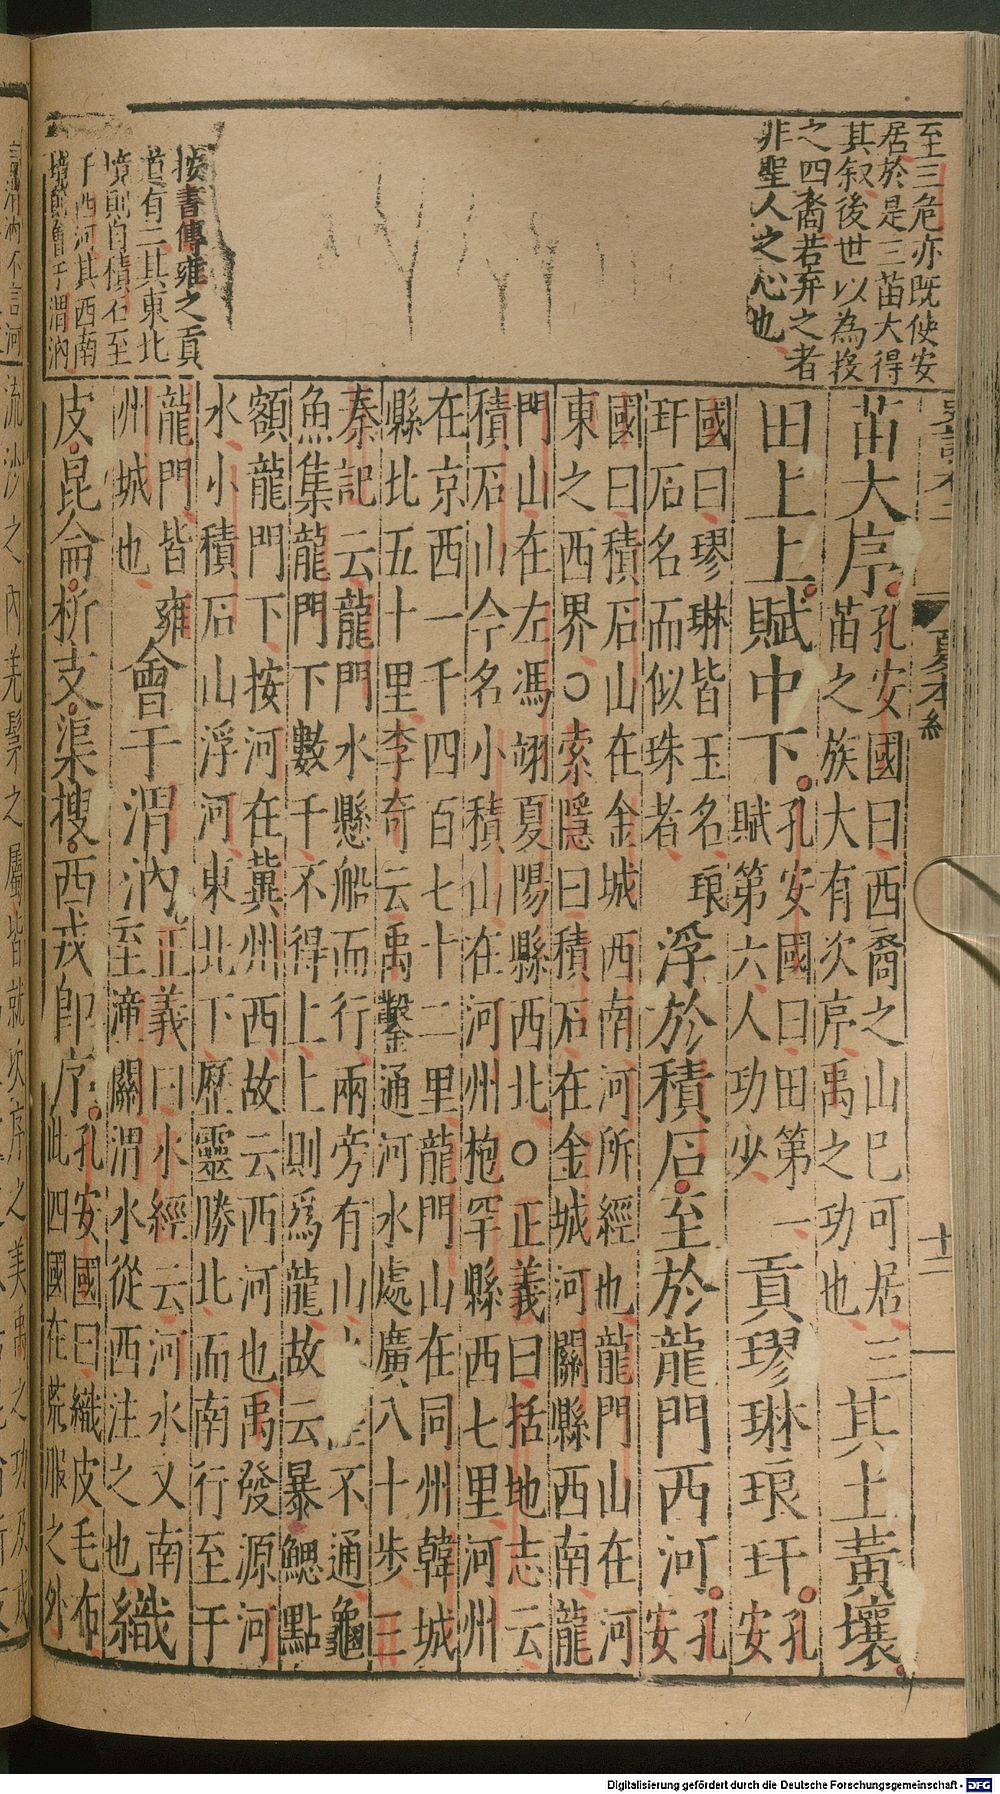 至三危亦既使安
居於是三苗大得
其叙後世以為投
之四裔若弃之者
非聖人之心也
按書傳雍之貢
道有二其東北
境則自積石至
于西河其西南
境則會于渭汭
夏本紀
苗大序。孔安國曰西裔之山已可居三
苗之族大有次序禹之功也
其土黃壤。
田上上。賦中下。孔安國曰田第一
賦第六人功少
貢璆琳琅玕。孔
安
國曰璆琳皆玉名琅
玕石名而似珠者
浮於積石。至於龍門西河。孔
安
國曰積石山在金城西南河所經也龍門山在河
東之西界○索隱曰積石在金城河關縣西南龍
門山在左馮翊夏陽縣西北○正義曰括地志云
積石山今名小積山在河州枹罕縣西七里河州
在京西一千四百七十二里龍門山在同州韓城
縣北五十里李奇云禹鑿通河水處廣八十步三
秦記云龍門水懸船而行兩旁有山不通龜
魚集龍門下數千不得上上則爲龍故云暴鰓點
額龍門下按河在冀州西故云西河也禹發源河
水小積石山浮河東北下歷靈勝北而南行至于
龍門皆雍
州城也
會于渭汭
正義曰水經云河水又南
至潼關渭水從西注之也
織
皮。昆侖。析支。渠搜。西戎即序。孔安國曰織皮毛布
此四國在荒服之外
流沙之內羌髳之屬皆就次序之美禹之功及戎
Digitalisierung gefördert durch die Deutsche Forschungsgemeinschaft - DFG